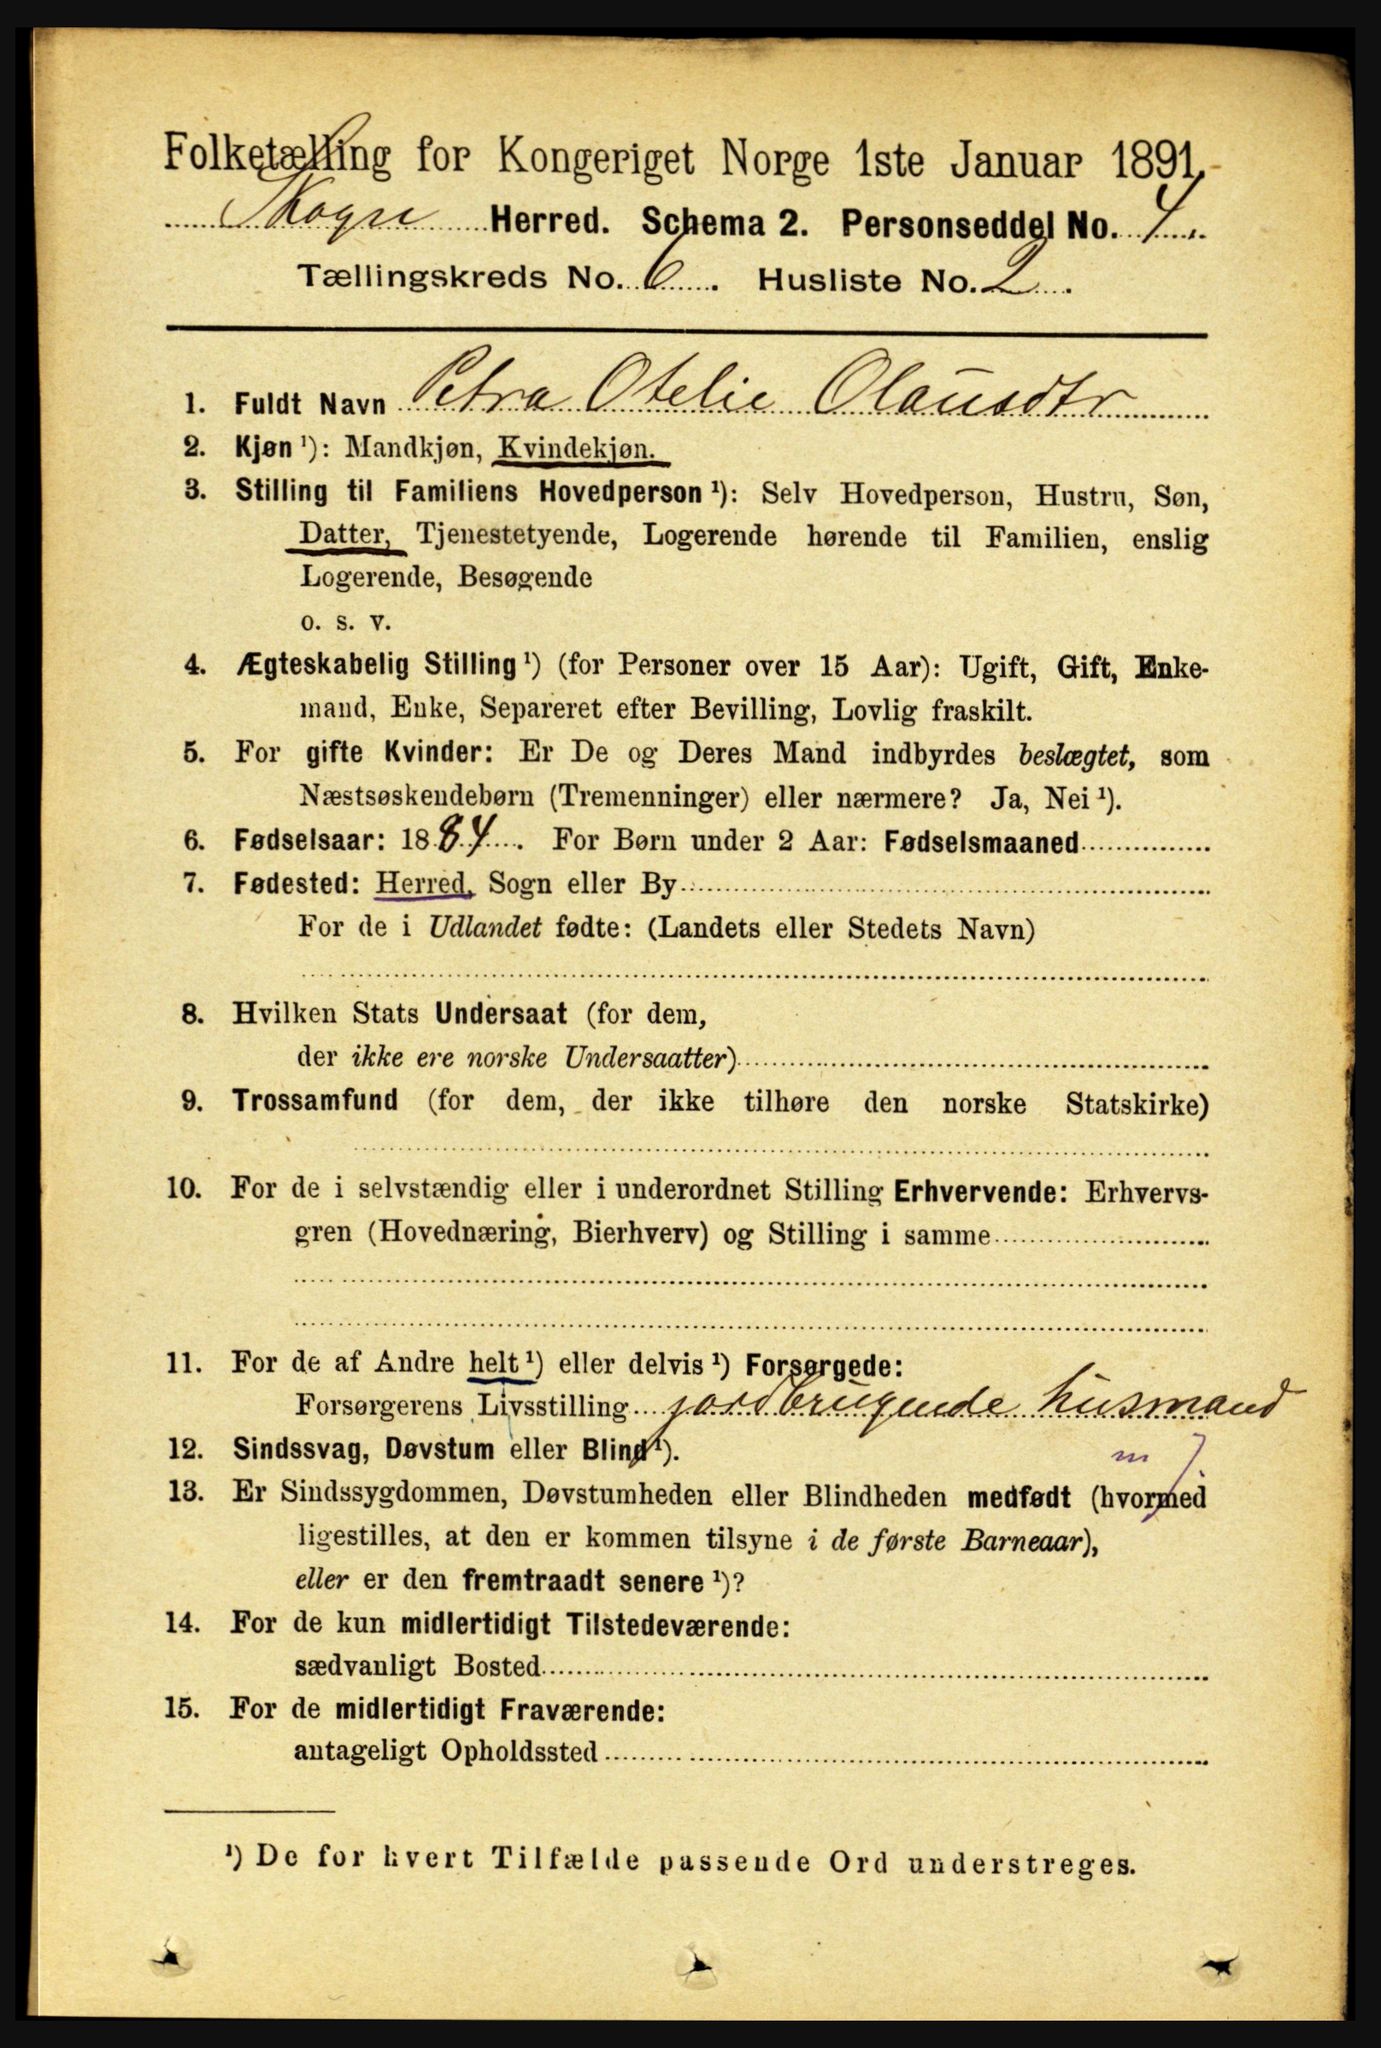 Folketælling for Kongeriget Norge 1ste Januar 1891.
Skogn Herred. Schema 2. Personseddel No. 4.
Tællingskreds No. 6. Husliste No. 2.
1. Fuldt Navn Petra Otelie Olausdtr
2. Kjøn ¹): Mandkjøn, Kvindekjøn.
3. Stilling til Familiens Hovedperson ¹): Selv Hovedperson, Hustru, Søn,
Datter, Tjenestetyende, Logerende hørende til Familien, enslig
Logerende, Besøgende
o. s. v.
4. Ægteskabelig Stilling ¹) (for Personer over 15 Aar): Ugift, Gift, Enke-
mand, Enke, Separeret efter Bevilling, Lovlig fraskilt.
5. For gifte Kvinder: Er De og Deres Mand indbyrdes beslægtet, som
Næstsøskendebørn (Tremenninger) eller nærmere? Ja, Nei ¹).
6. Fødselsaar: 1884. For Børn under 2 Aar: Fødselsmaaned
7. Fødested: Herred, Sogn eller By
For de i Udlandet fødte: (Landets eller Stedets Navn)
8. Hvilken Stats Undersaat (for dem,
der ikke ere norske Undersaatter)
9. Trossamfund (for dem, der ikke tilhøre den norske Statskirke)
10. For de i selvstændig eller i underordnet Stilling Erhvervende: Erhvervs-
gren (Hovednæring, Bierhverv) og Stilling i samme
11. For de af Andre helt ¹) eller delvis ¹) Forsørgede:
Forsørgerens Livsstilling jordbrugende husmand
12. Sindssvag, Døvstum eller Blind ¹).
m J
13. Er Sindssygdommen, Døvstumheden eller Blindheden medfødt (hvormed
ligestilles, at den er kommen tilsyne i de første Barneaar),
eller er den fremtraadt senere ¹)?
14. For de kun midlertidigt Tilstedeværende:
sædvanligt Bosted
15. For de midlertidigt Fraværende:
antageligt Opholdssted
¹) De for hvert Tilfælde passende Ord understreges.